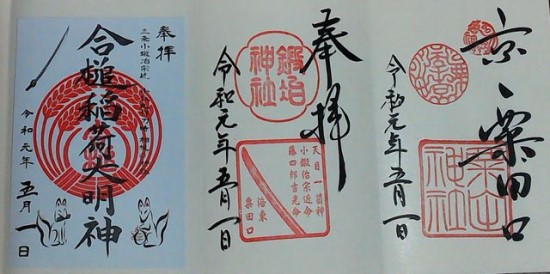 京 粟田口
粟田神社
令和元年五月一日
奉拝
鍛冶神社
天目一箇神
小鍛冶宗近命
藤四郎吉光命
洛東
粟田口
令和元年五月一日
奉拝
三条小鍛冶宗近
合槌稲荷大明神
令和元年 五月一日